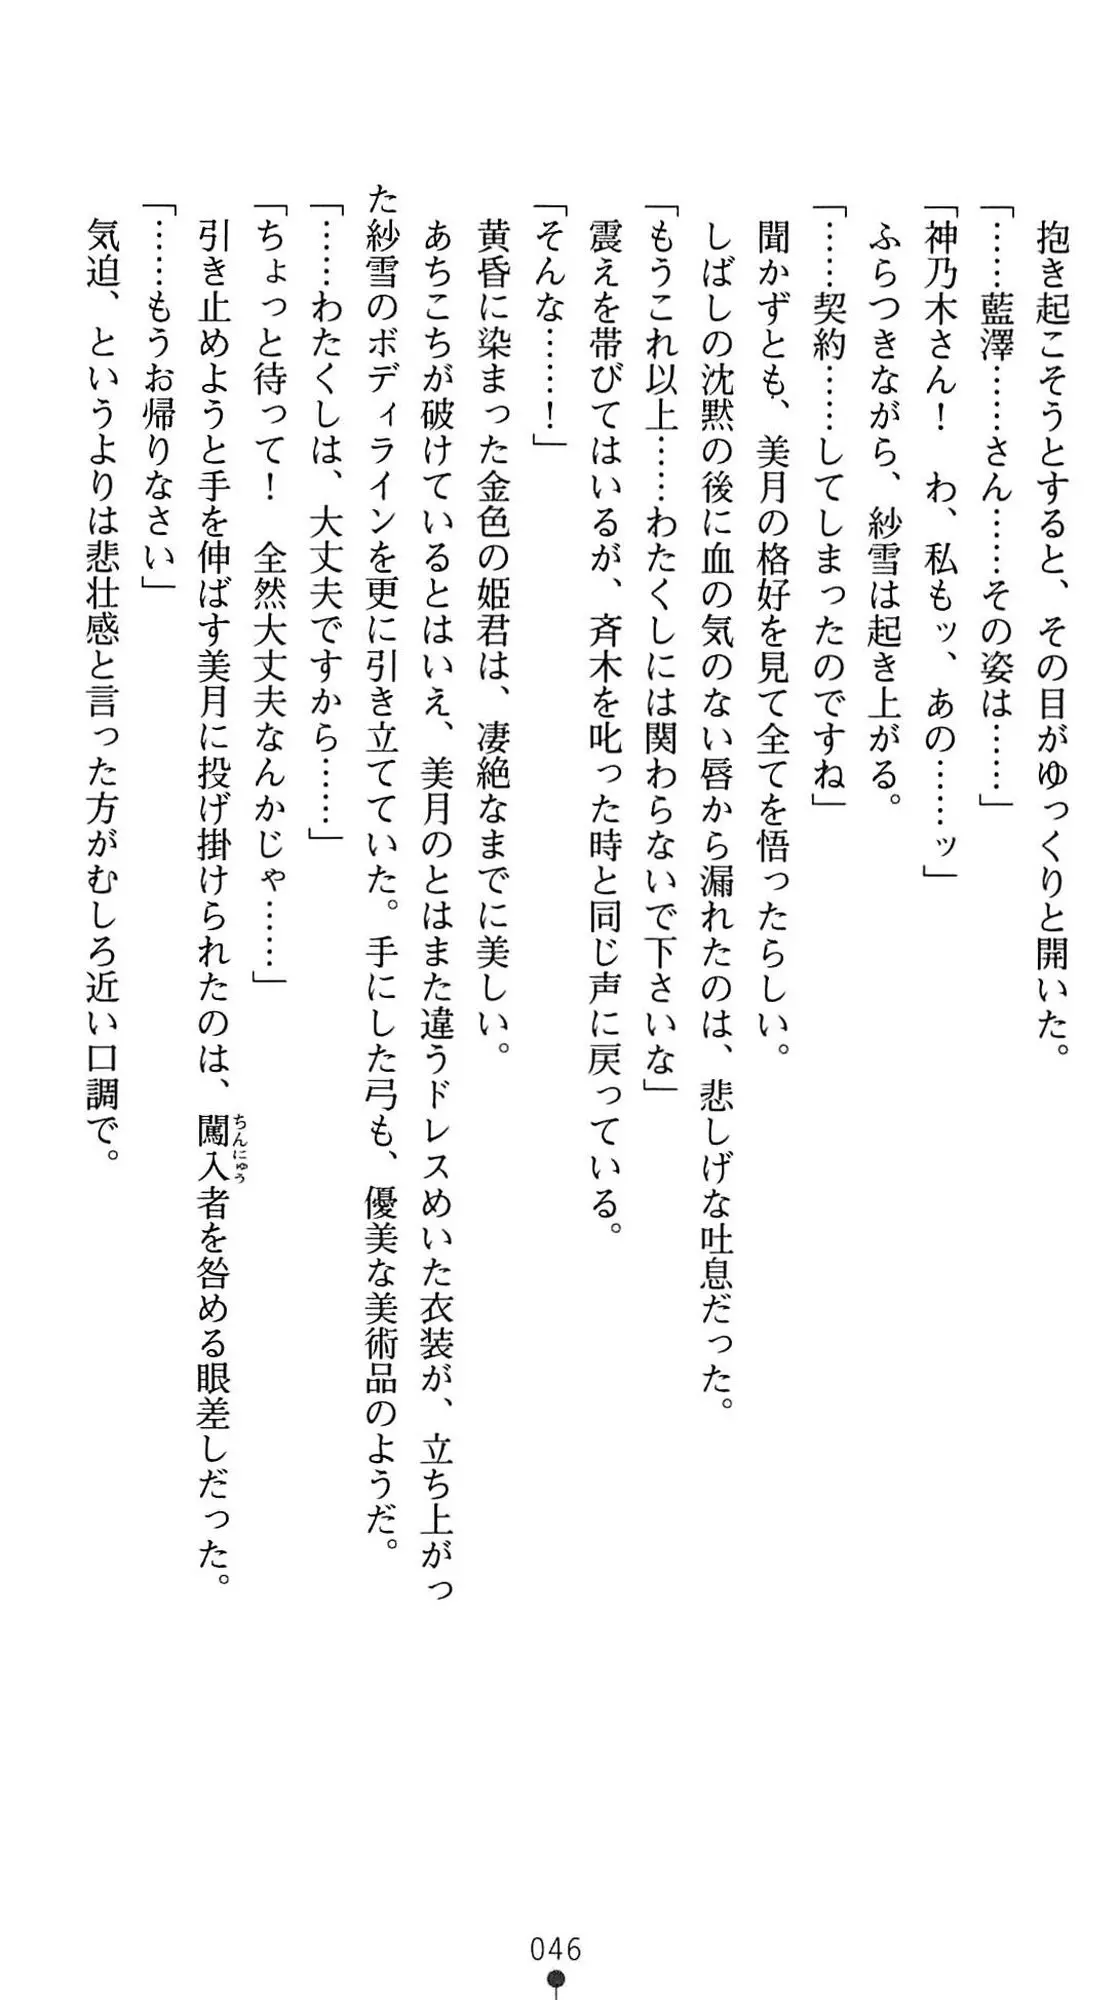 抱き起こそうとすると、その目がゆっくりと開いた。
「……藍澤……さん……その姿は……」
「神乃木さん！　わ、私もッ、あの……ッ」
ふらつきながら、紗雪は起き上がる。
「……契約……してしまったのですね」
聞かずとも、美月の格好を見て全てを悟ったらしい。
しばしの沈黙の後に血の気のない唇から漏れたのは、悲しげな吐息だった。
「もうこれ以上……わたくしには関わらないで下さいな」
震えを帯びてはいるが、斉木を叱った時と同じ声に戻っている。
「そんな……！」
黄昏に染まった金色の姫君は、凄絶なまでに美しい。
あちこちが破けているとはいえ、美月のとはまた違うドレスめいた衣装が、立ち上がっ
た紗雪のボディラインを更に引き立てていた。手にした弓も、優美な美術品のようだ。
「……わたくしは、大丈夫ですから……」
「ちょっと待って！　全然大丈夫なんかじゃ……」
引き止めようと手を伸ばす美月に投げ掛けられたのは、闖入者を咎める眼差しだった。
ちんにゅう
「……もうお帰りなさい」
気迫、というよりは悲壮感と言った方がむしろ近い口調で。
046